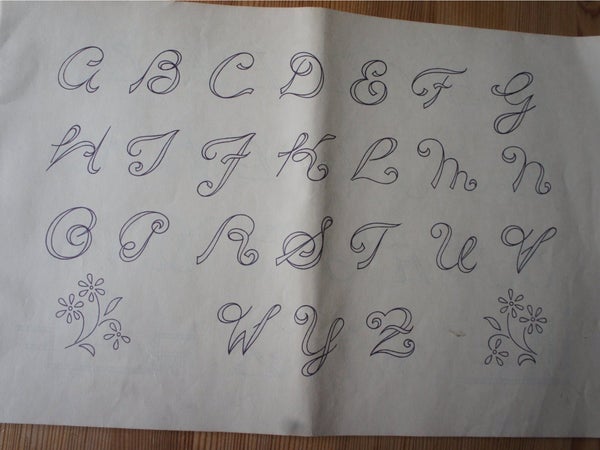 A B C D E F G
H I J K L M N
O P R S T U V
W Y Z